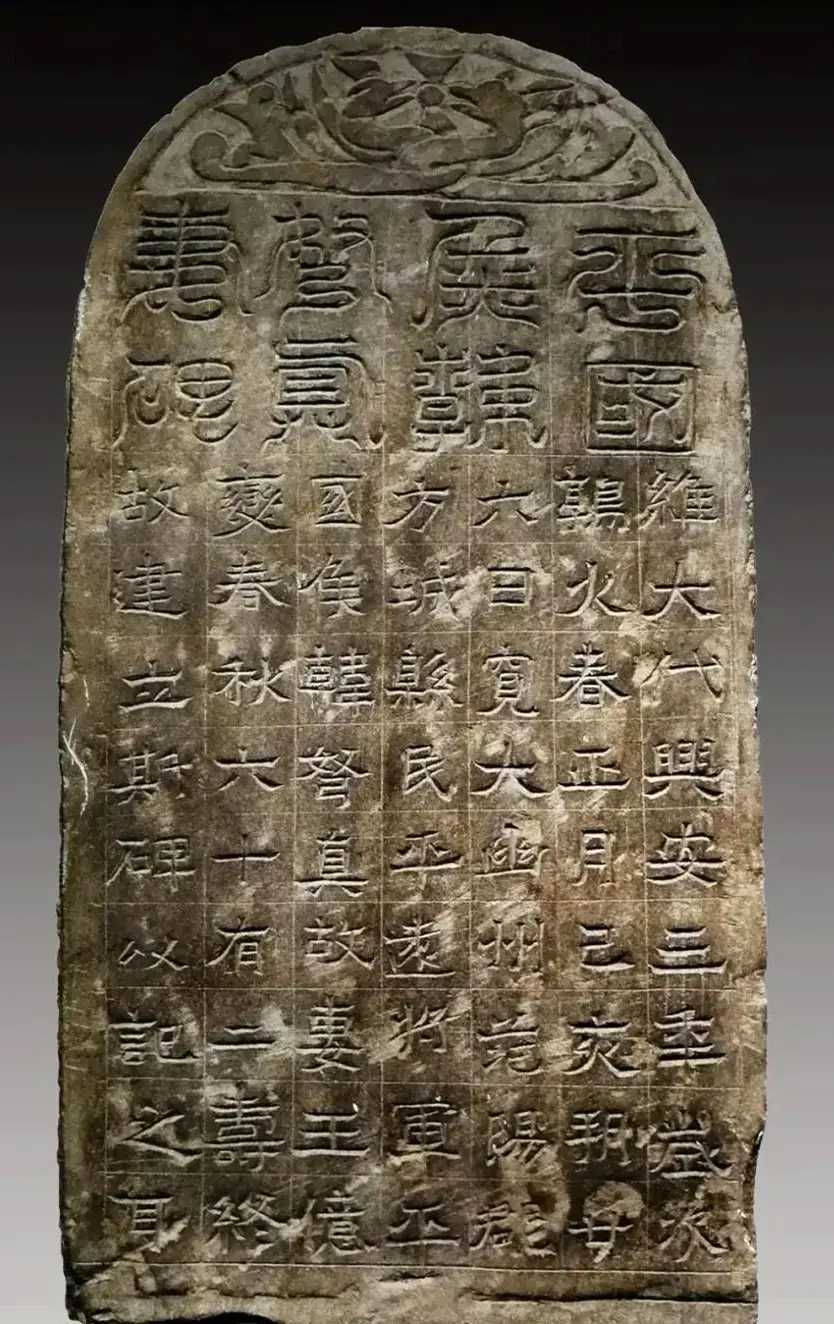 平國
侯韓
弩真
妻碑
維大代興安三年歲次
鶉火春正月己亥朔廿
六日寬大幽州范陽郡
方城縣民平遠將軍平
国侯韓弩真故妻王億
變春秋六十有二壽終
故建立斯碑以記之耳